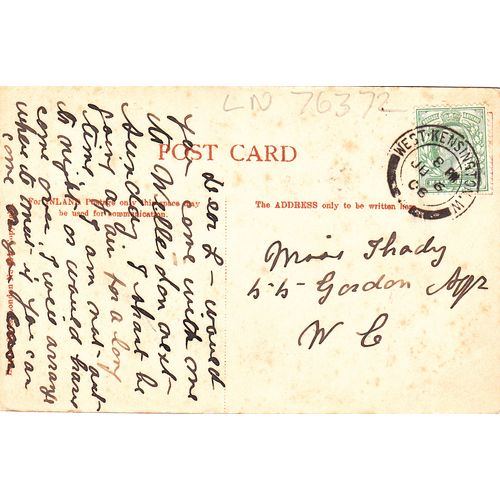 LN 76372
POST CARD
WEST KENSINGTON. W
8 PM
JU 6
06
For INLAND Postage only this space may
be used for communication.
The ADDRESS only to be written here.
Miss Thady
55 Gordon Sqr
W C
Dear L - would
you come with me
to Willesden next
Sunday I shant be
going again for a long
time I am not out
to night or would have
come over I will arrange
where to meet if you can
come